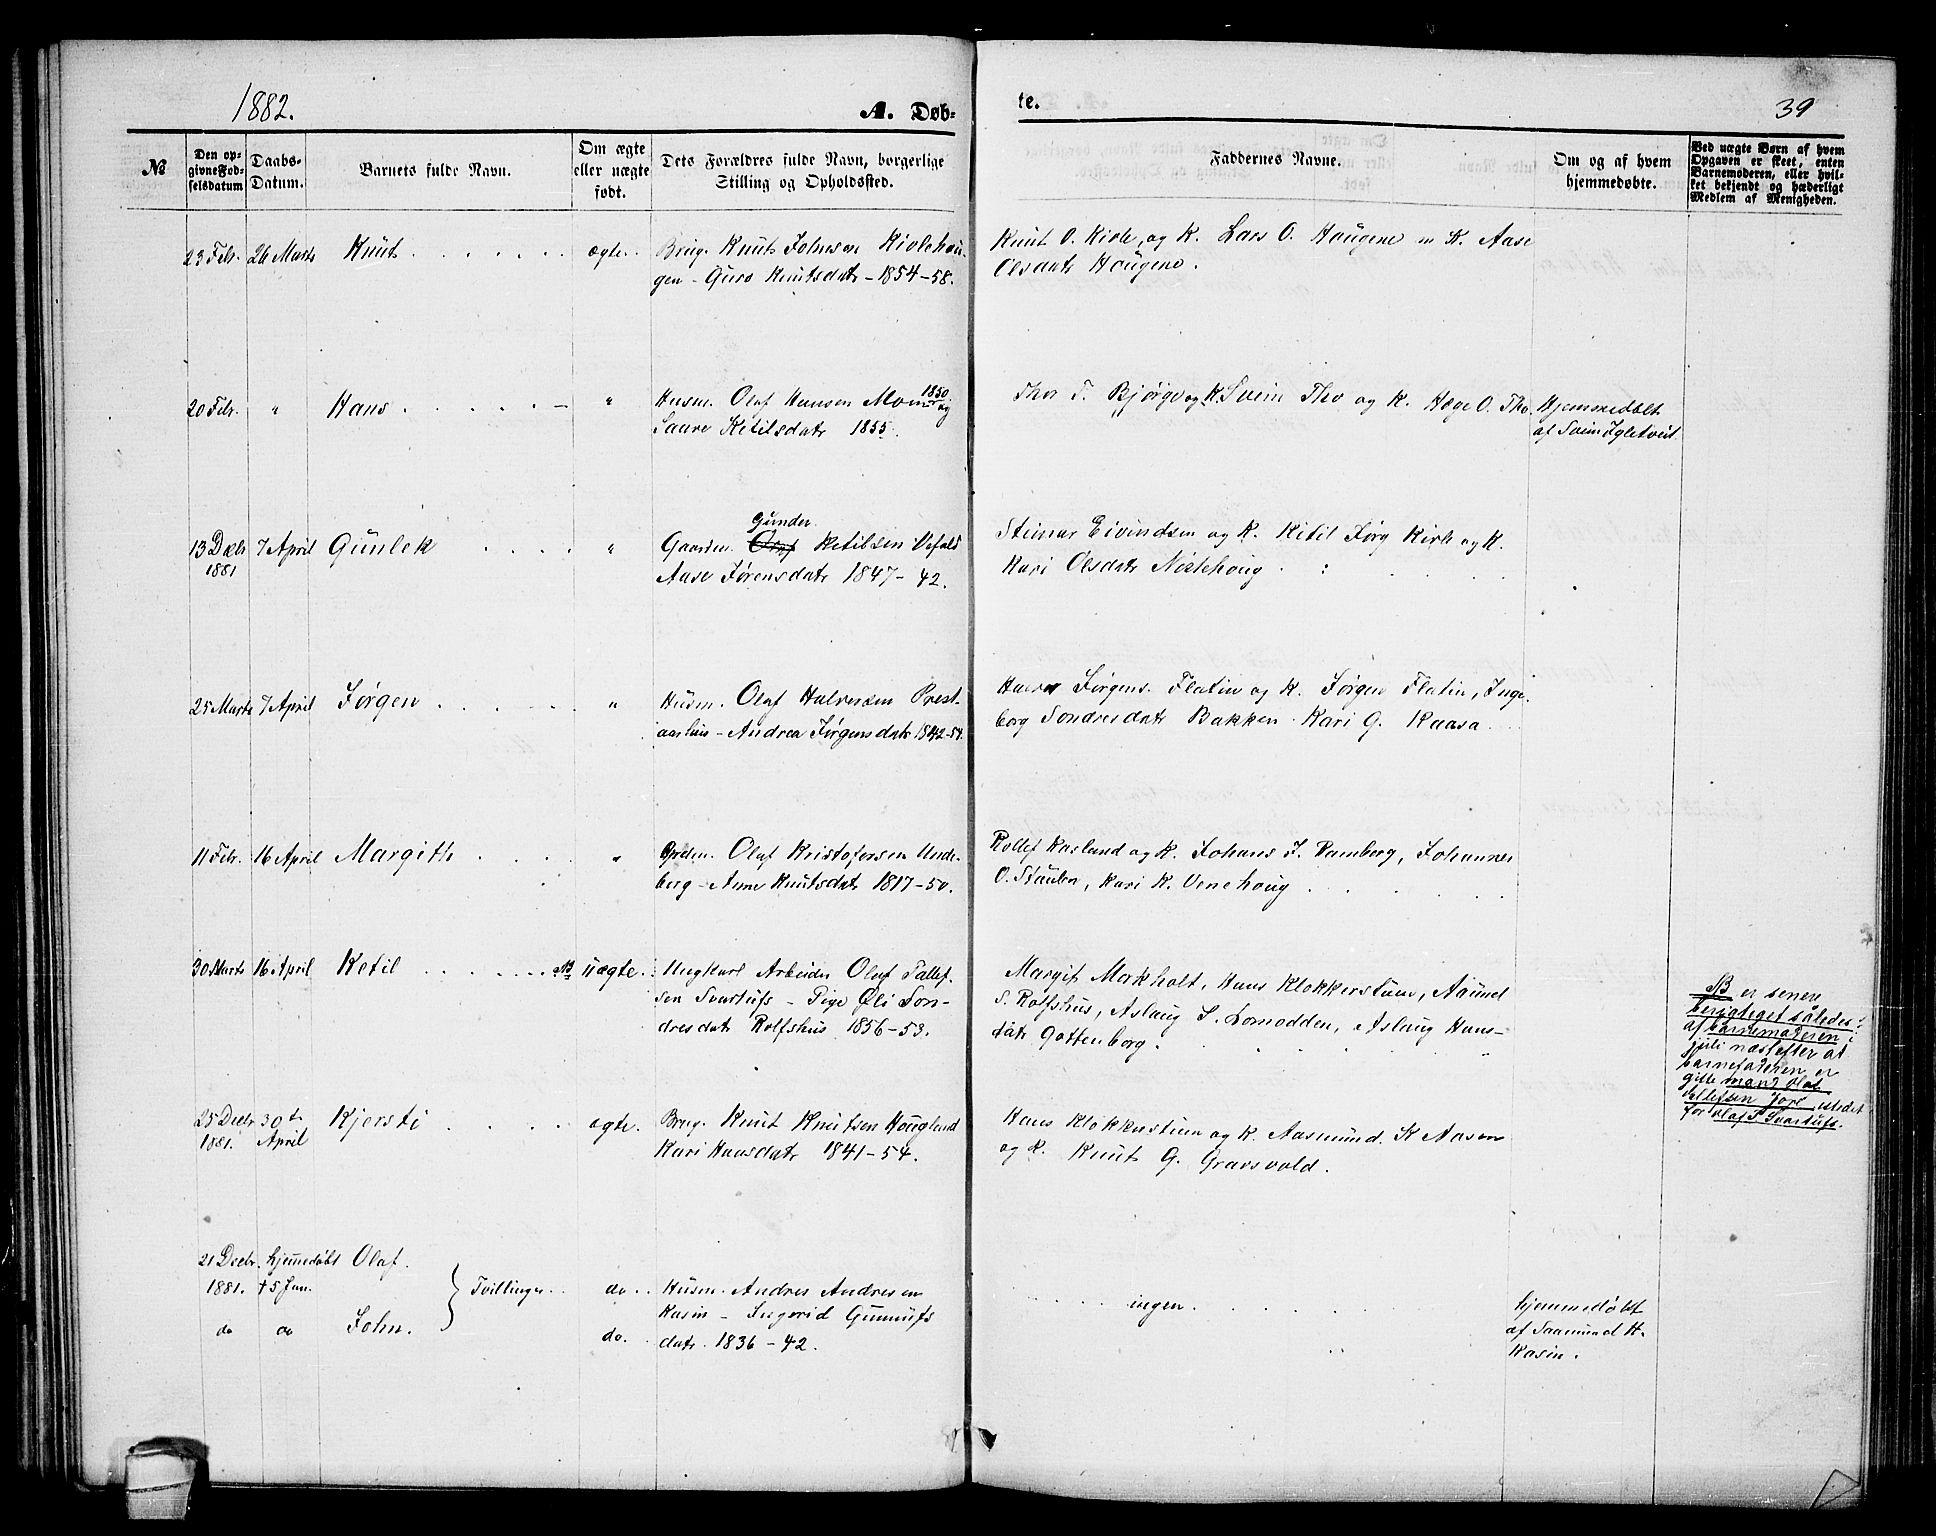 1882.
A. Døb-
te.
39
No
Den op-
givne Fød-
selsdatum
Daabs-
Datum.
Barnets fulde Navn.
Om ægte
eller uægte
født.
Dets Forældres fulde Navn, borgerlige
Stilling og Opholdssted.
Faddernes Navne.
Om og af hvem
hjemmedøbte.
Ved uægte Børn af hvem
Opgaven er skeet, enten
Barnemoderen, eller hvil-
ket bekjendt og hæderligt
Medlem af Menigheden.
23 Febr. 26 Marts Knut ægte Brug. Knut Johnsen Kivlehou-
gen - Guro Knutsdatr - 1854-58.
Knut O. Kivle, og K. Lars O. Haugene m K. Aase
Olsdatr Haugene.
20 Febr. " Hans " Husm. Olaf Hansen Moen 1850 og
Saave Ketilsdatr 1855.
Thor T. Bjørge og K. Svein Tho og K. Hæge O. Tho.
Hjemmedøbt
af Svein Igletveit
13 Decbr 7 April Gunlek " Gaardm. Gunder Olaf Ketilsen Vefald
1881
Aase Jørensdatr 1847-42.
Steinar Eivindsen og K. Kitil Jørg Kivle og K.
Kari Olsdatr Nistehoug
25 Marts 7 April Jørgen " Husm. Olaf Halvorsen Prest-
aarhus - Andrea Jørgensdatr 1842-54.
Jørgens. Flatin og K. Jørgen Flatin, Inge-
borg Sondresdatr Bakken. Kari G. Kaasa
11 Febr. 16 April Margith " Olaf Kristofersen Unde-
berg - Anne Knutsdatr 1817-50.
Rollef Kasland og K. Johans J. Vamberg, Johannes
O. Staulen, Kari K. Venehoug
30 Marts 16 April Ketil NB uægte Ungkarl Arbeider Olaf Tallef-
sen Svartufs - Pige Øli Son-
dresdatr Rolfshus 1856-53.
Margit Morkholt, Hans Klokkerstuen, Aamund
S. Rolfshus, Aslaug S. Lomodden, Aslaug Hans-
datr Gottenborg.
NB er senere
berigtiget således
af barnemoderen i
juli næstefter at
barnefaderen er
gifte mand Olaf
Tallefsen Jore istedet
for Olaf T. Svartufs.
25 Decbr 30te Kjersti ægte. Brug. Knut Knutsen Houglund
1881. April
Kari Hansdatr 1841-54.
Hans Klokkerstuen og K. Aasmund K Aasen
og K. Knut G. Gransvold.
21 Decbr. hjemmedøbt Olaf.
1881. † 5 Jan. Tvillinger do Husm. Andres Andresen
Kasin - Ingerid Gunnufs
do do John. do. datr. 1836-42.
ingen
hjemmedøbt
af Saamund H.
Kasin.